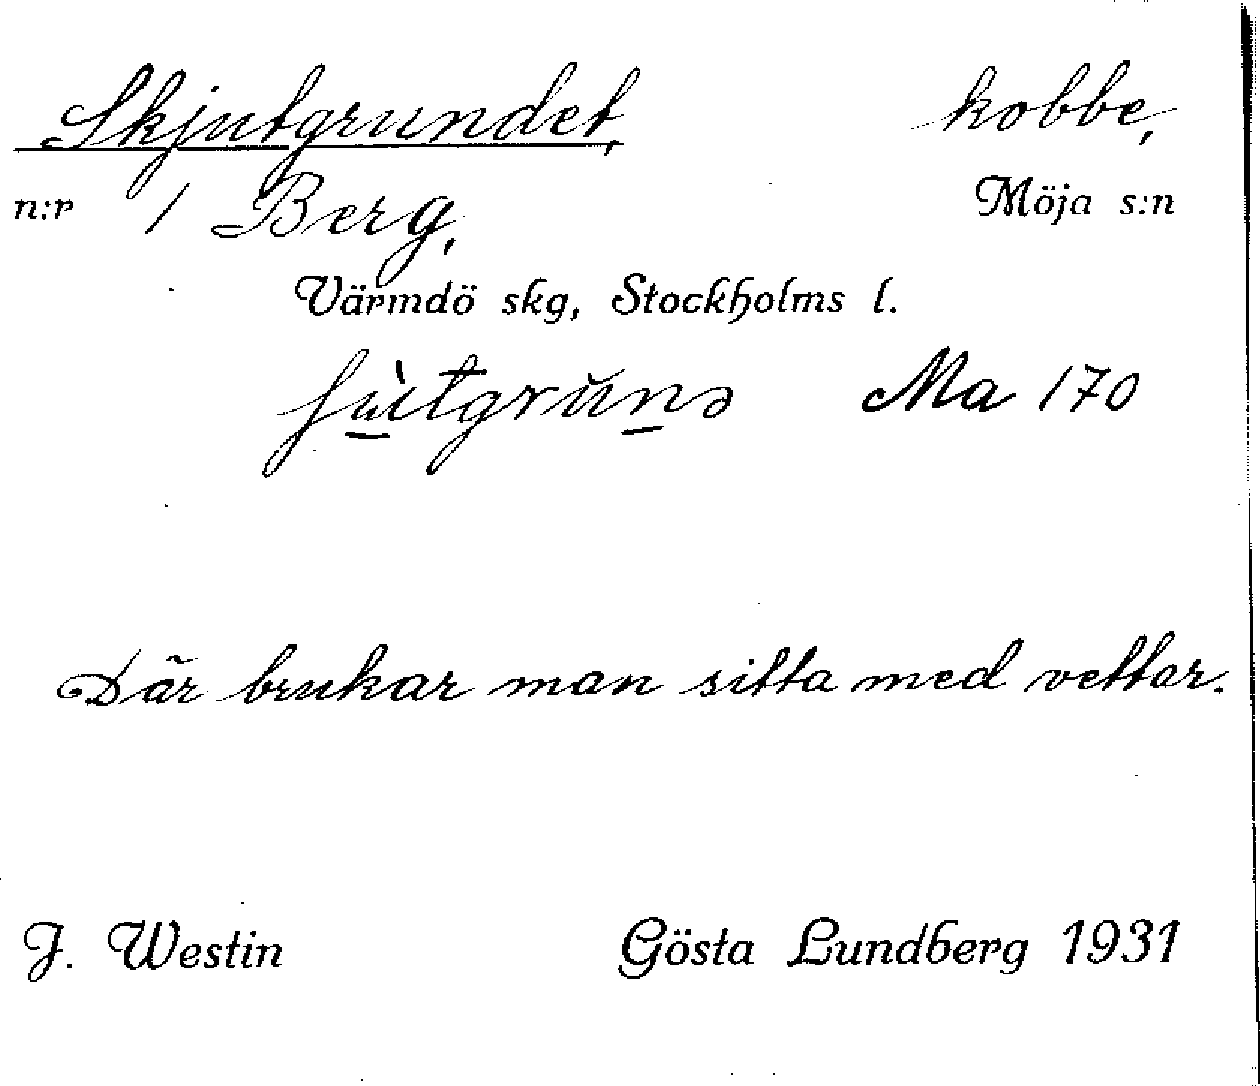 Skjutgrundet, kobbe,
n:r 1 Berg, Möja s:n
Värmdö skg, Stockholms l.
Ma 170
Där brukar man sitta med vettar.
J. Westin Gösta Lundberg 1931